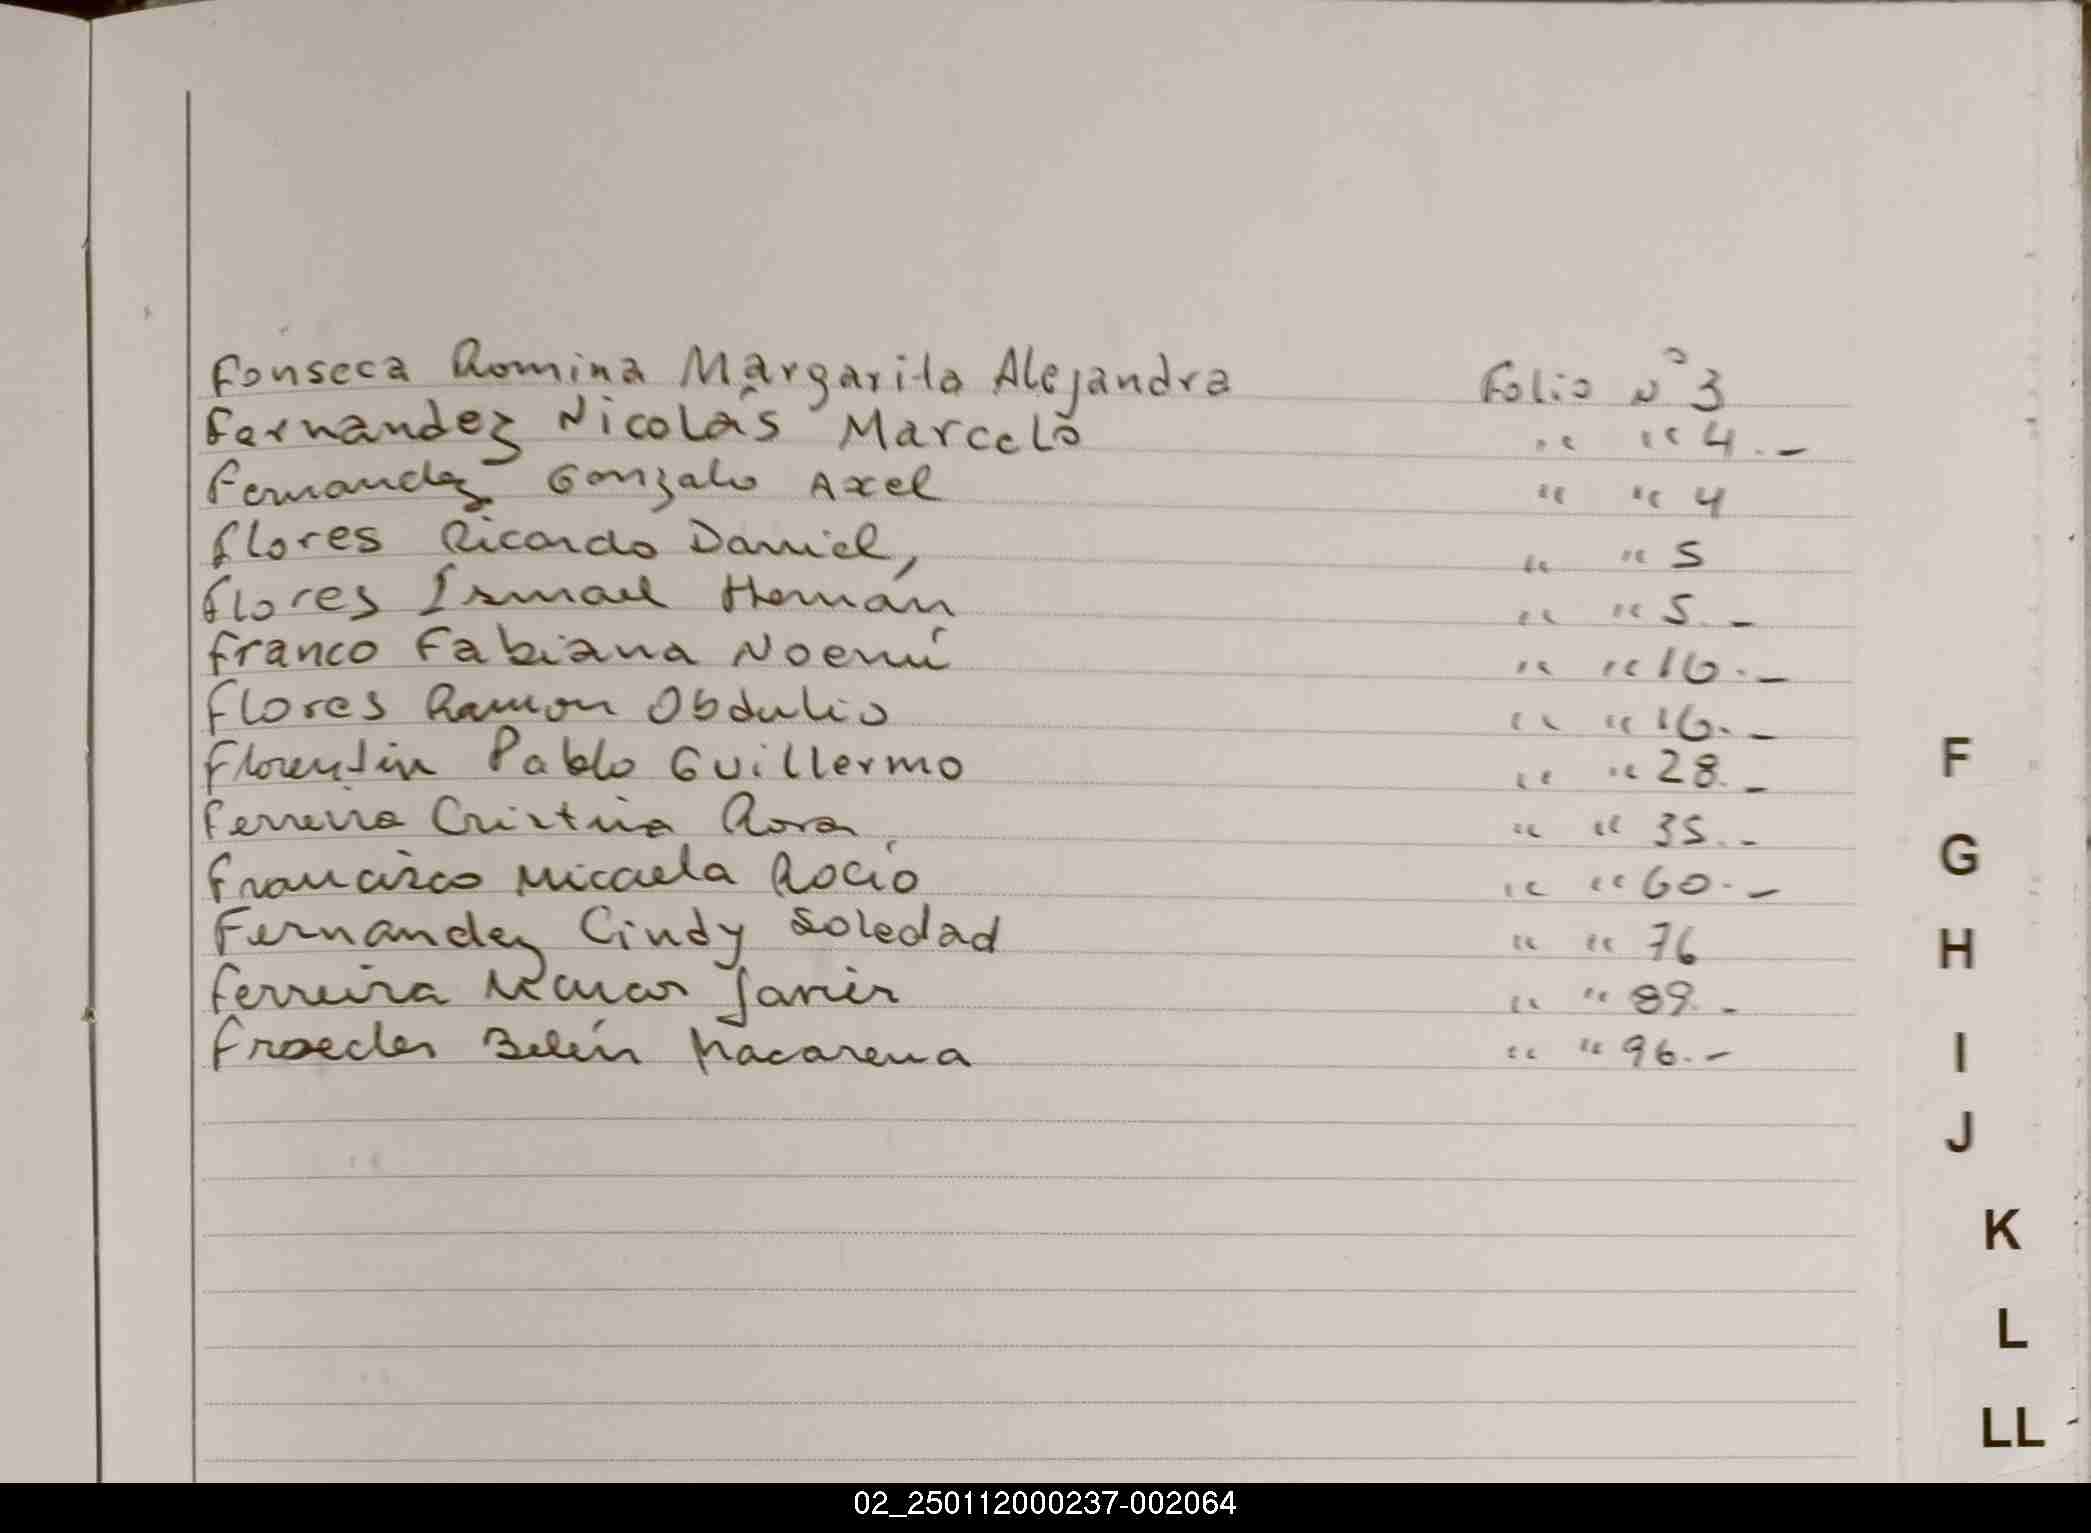 Fonseca Romina Margarita Alejandra Folio N° 3
Fernández Nicolás Marcelo " " 4.-
Fernandez Gonzalo Axel " " 4
Flores Ricardo Daniel, " " 5
Flores Ismael Hernán " " 5.-
Franco Fabiana Noemí " " 16.-
Flores Ramon Obdulio " " 16.-
Florentin Pablo Guillermo " " 28.-
Ferreira Cristina Rosa " " 35.-
Francisco Micaela Rocío " " 60.-
Fernandez Cindy Soledad " " 76
Ferreira Marcos Javier " " 89.-
Froeder Belén Macarena " " 96.-
F
G
H
I
J
K
L
LL
02_250112000237-002064